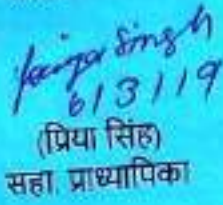 Singh
6/3/19
(प्रिया सिंह)
सहा. प्राध्यापिका